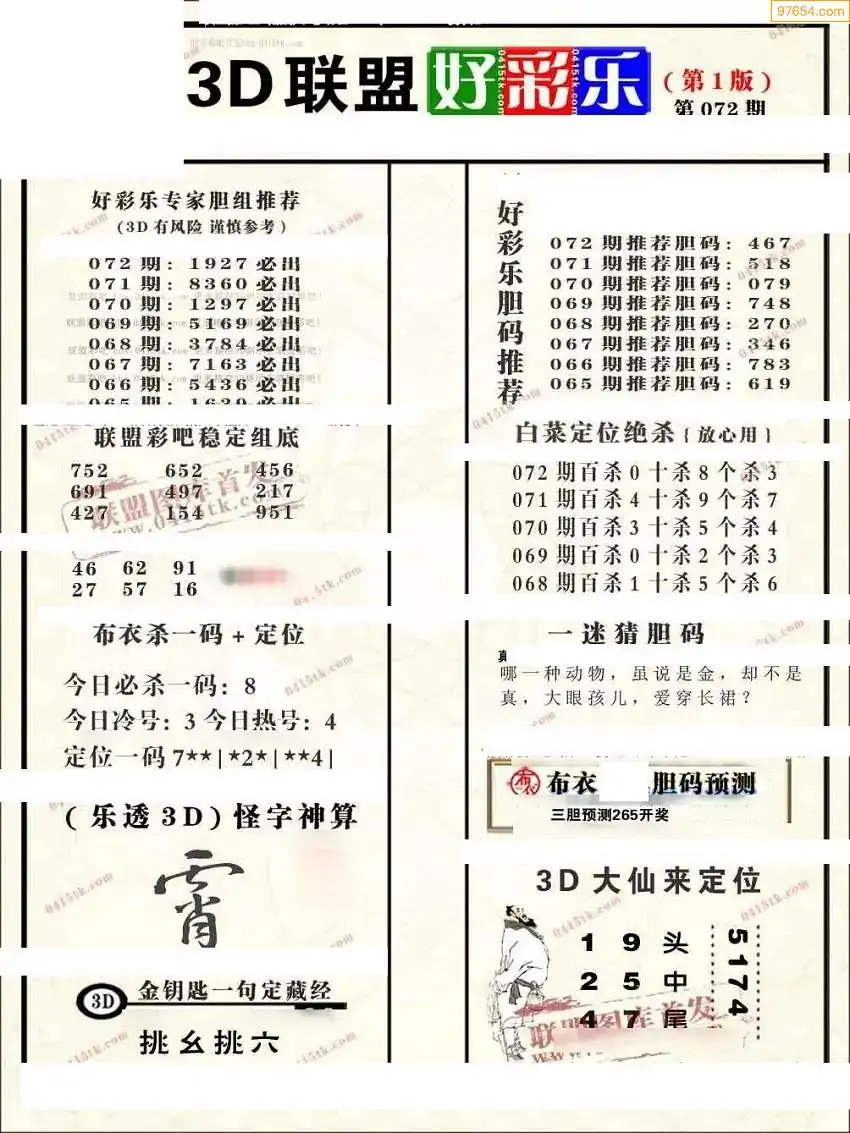 97654.com
3D联盟好彩乐
(第1版)
第072期
好彩乐专家胆组推荐
(3D有风险 谨慎参考)
072期:1927必出
071期:8360必出
070期:1297必出
069期:5169必出
068期:3784必出
067期:7163必出
066期:5436必出
065期:1639必出
联盟彩吧稳定组底
752 652 456
691 497 217
427 154 951
联盟图库首发
www.0415tk.com
46 62 91
27 57 16
布衣杀一码+定位
今日必杀一码:8
今日冷号:3 今日热号:4
定位一码7**|*2*|**4|
(乐透3D)怪字神算
霄
3D 金钥匙一句定藏经
挑幺挑六
好彩乐胆码推荐
072期推荐胆码:467
071期推荐胆码:518
070期推荐胆码:079
069期推荐胆码:748
068期推荐胆码:270
067期推荐胆码:346
066期推荐胆码:783
065期推荐胆码:619
白菜定位绝杀{放心用}
072期百杀0十杀8个杀3
071期百杀4十杀9个杀7
070期百杀3十杀5个杀4
069期百杀0十杀2个杀3
068期百杀1十杀5个杀6
一迷猜胆码
哪一种动物,虽说是金,却不是
真,大眼孩儿,爱穿长裙?
布衣 胆码预测
三胆预测265开奖
3D大仙来定位
1 9 头
2 5 中
4 7 尾
5174
联盟图库首发